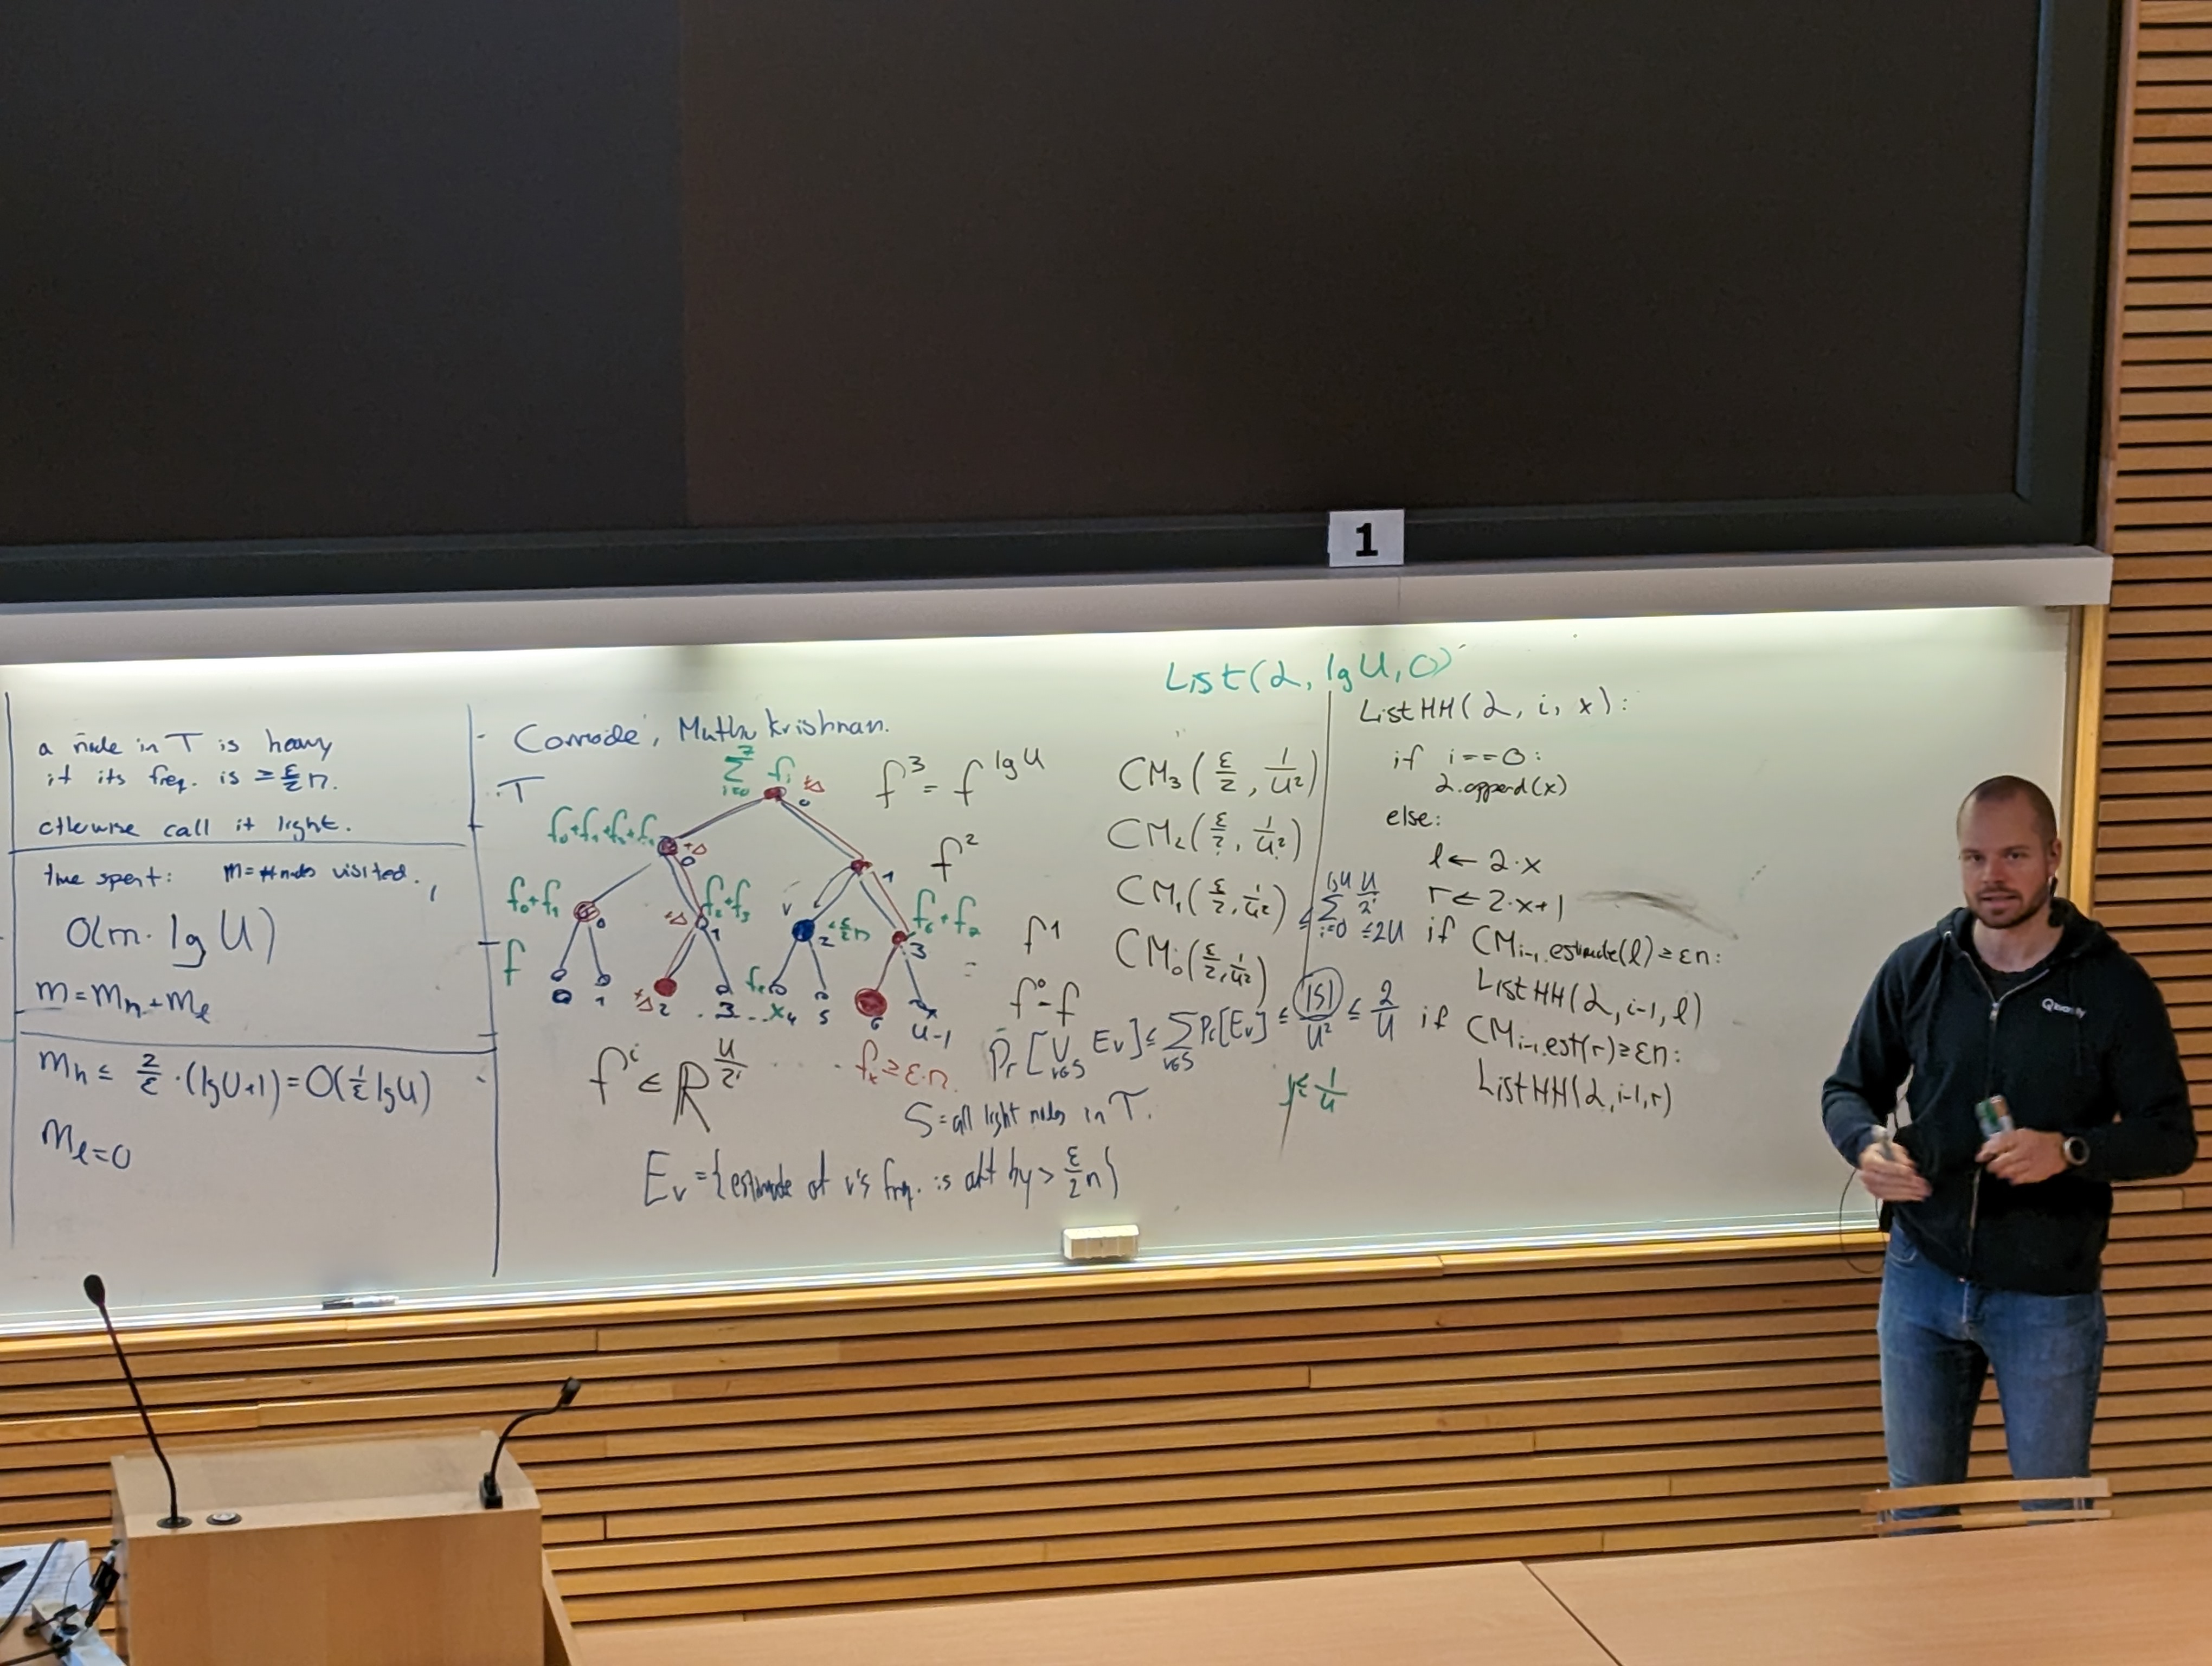 1
a node in T is heavy
if its freq. is ≥ ε/2 n.
otherwise call it light.
time spent: m = # nodes visited.
O(m · lg U)
m = m_h + m_l
m_h ≤ 2/ε · (lg U + 1) = O(1/ε lg U)
m_l = 0
Cormode, Muthu krishnan.
T
7
Σ f_i +Δ
i=0
0
f^3 = f^{lg U}
f_0+f_1+f_2+f_3
+Δ
0
1
f^2
f_0+f_1
0
+Δ
f_2+f_3
1
v
2
≤ ε/2 n
3
f_6+f_7
f^1
f
0 1 +Δ 2 . 3 . . x 4 5 6 U-1
f^0 = f
f^i ∈ R^{U/2^i} . . . .
f_x ≥ ε·n.
CM_3(ε/2, 1/U^2)
CM_2(ε/2, 1/U^2)
CM_1(ε/2, 1/U^2)
CM_0(ε/2, 1/U^2)
≤ Σ_{i=0}^{lg U} U/2^i ≤ 2U
Pr[∪_{v∈S} E_v] ≤ Σ_{v∈S} Pr[E_v] ≤ |S|/U^2 ≤ 2/U
S = all light nodes in T.
≤ 1/U
E_v = {estimate of v's frq. is off by > ε/2 n}
List(L, lg U, 0)
ListHH(L, i, x):
if i == 0:
L.append(x)
else:
l ← 2·x
r ← 2·x+1
if CM_{i-1}.estimate(l) ≥ εn:
ListHH(L, i-1, l)
if CM_{i-1}.est(r) ≥ εn:
ListHH(L, i-1, r)